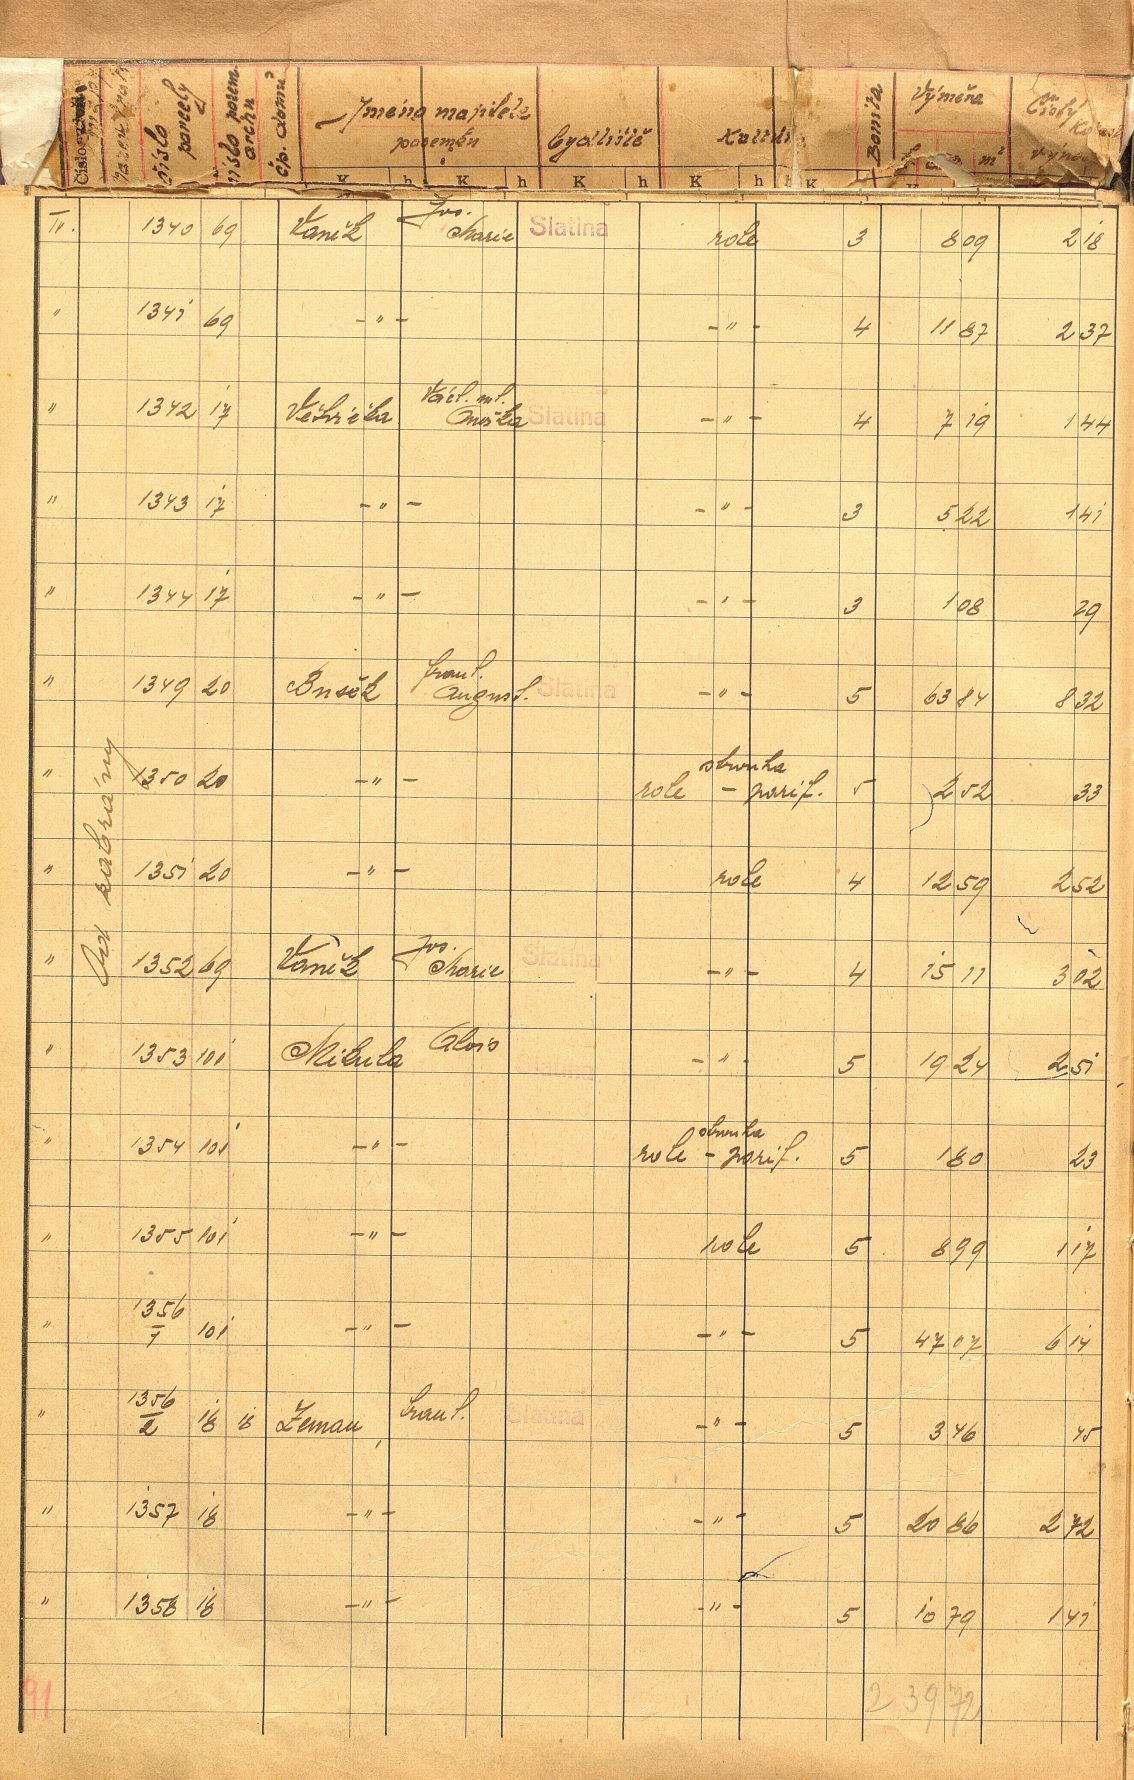 číslo parcely číslo pozem. archu čp. domu Jméno majitele pozemku Bydliště Kultura Bonita Výměra ha a m² Čistý výnos
K h K h K h K h K
IV. 1340 69 Vaněk Jos. Marie Slatina role 3 8 09 2 18
" 1341 69 - " - - " - 4 11 87 2 37
" 1342 17 Větřička Václ. ml. Anežka Slatina - " - 4 7 19 1 44
" 1343 17 - " - - " - 3 5 22 1 41
" 1344 17 - " - - " - 3 1 08 29
" 1349 20 Bušek Frant. August. Slatina - " - 5 63 84 8 32
" 1350 20 - " - role - parif. 5 2 52 33
" 1351 20 - " - role 4 12 59 2 52
" 1352 69 Vaněk Jos. Marie Slatina - " - 4 15 11 3 02
" 1353 101 Mikula Alois Slatina - " - 5 19 24 2 51
" 1354 101 - " - role - parif. 5 1 80 23
" 1355 101 - " - role 5 8 99 1 17
" 1356/1 101 - " - - " - 5 47 07 6 14
" 1356/2 18 18 Zeman, Frant. Slatina - " - 5 3 46 45
" 1357 18 - " - - " - 5 20 86 2 72
" 1358 18 - " - - " - 5 10 79 1 41
91 2 39 72